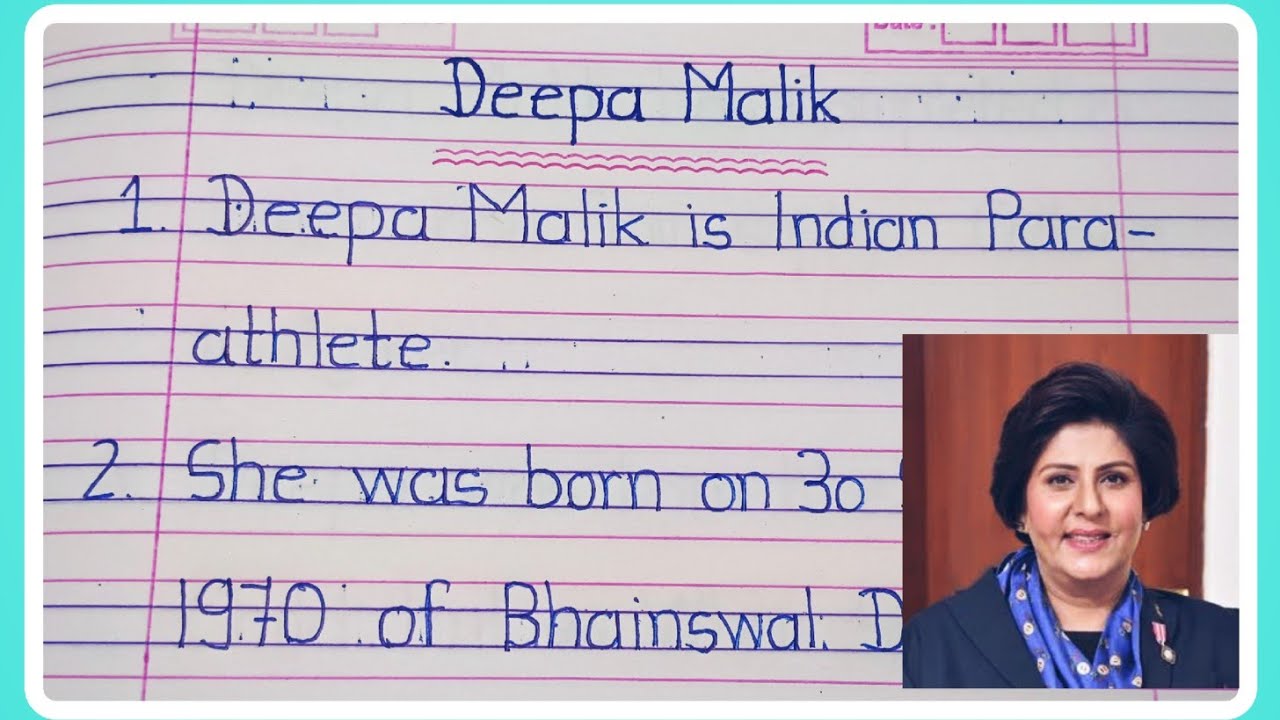 Date :
Deepa Malik
1. Deepa Malik is Indian Para-
athlete.
2. She was born on 30
1970 of Bhainswal